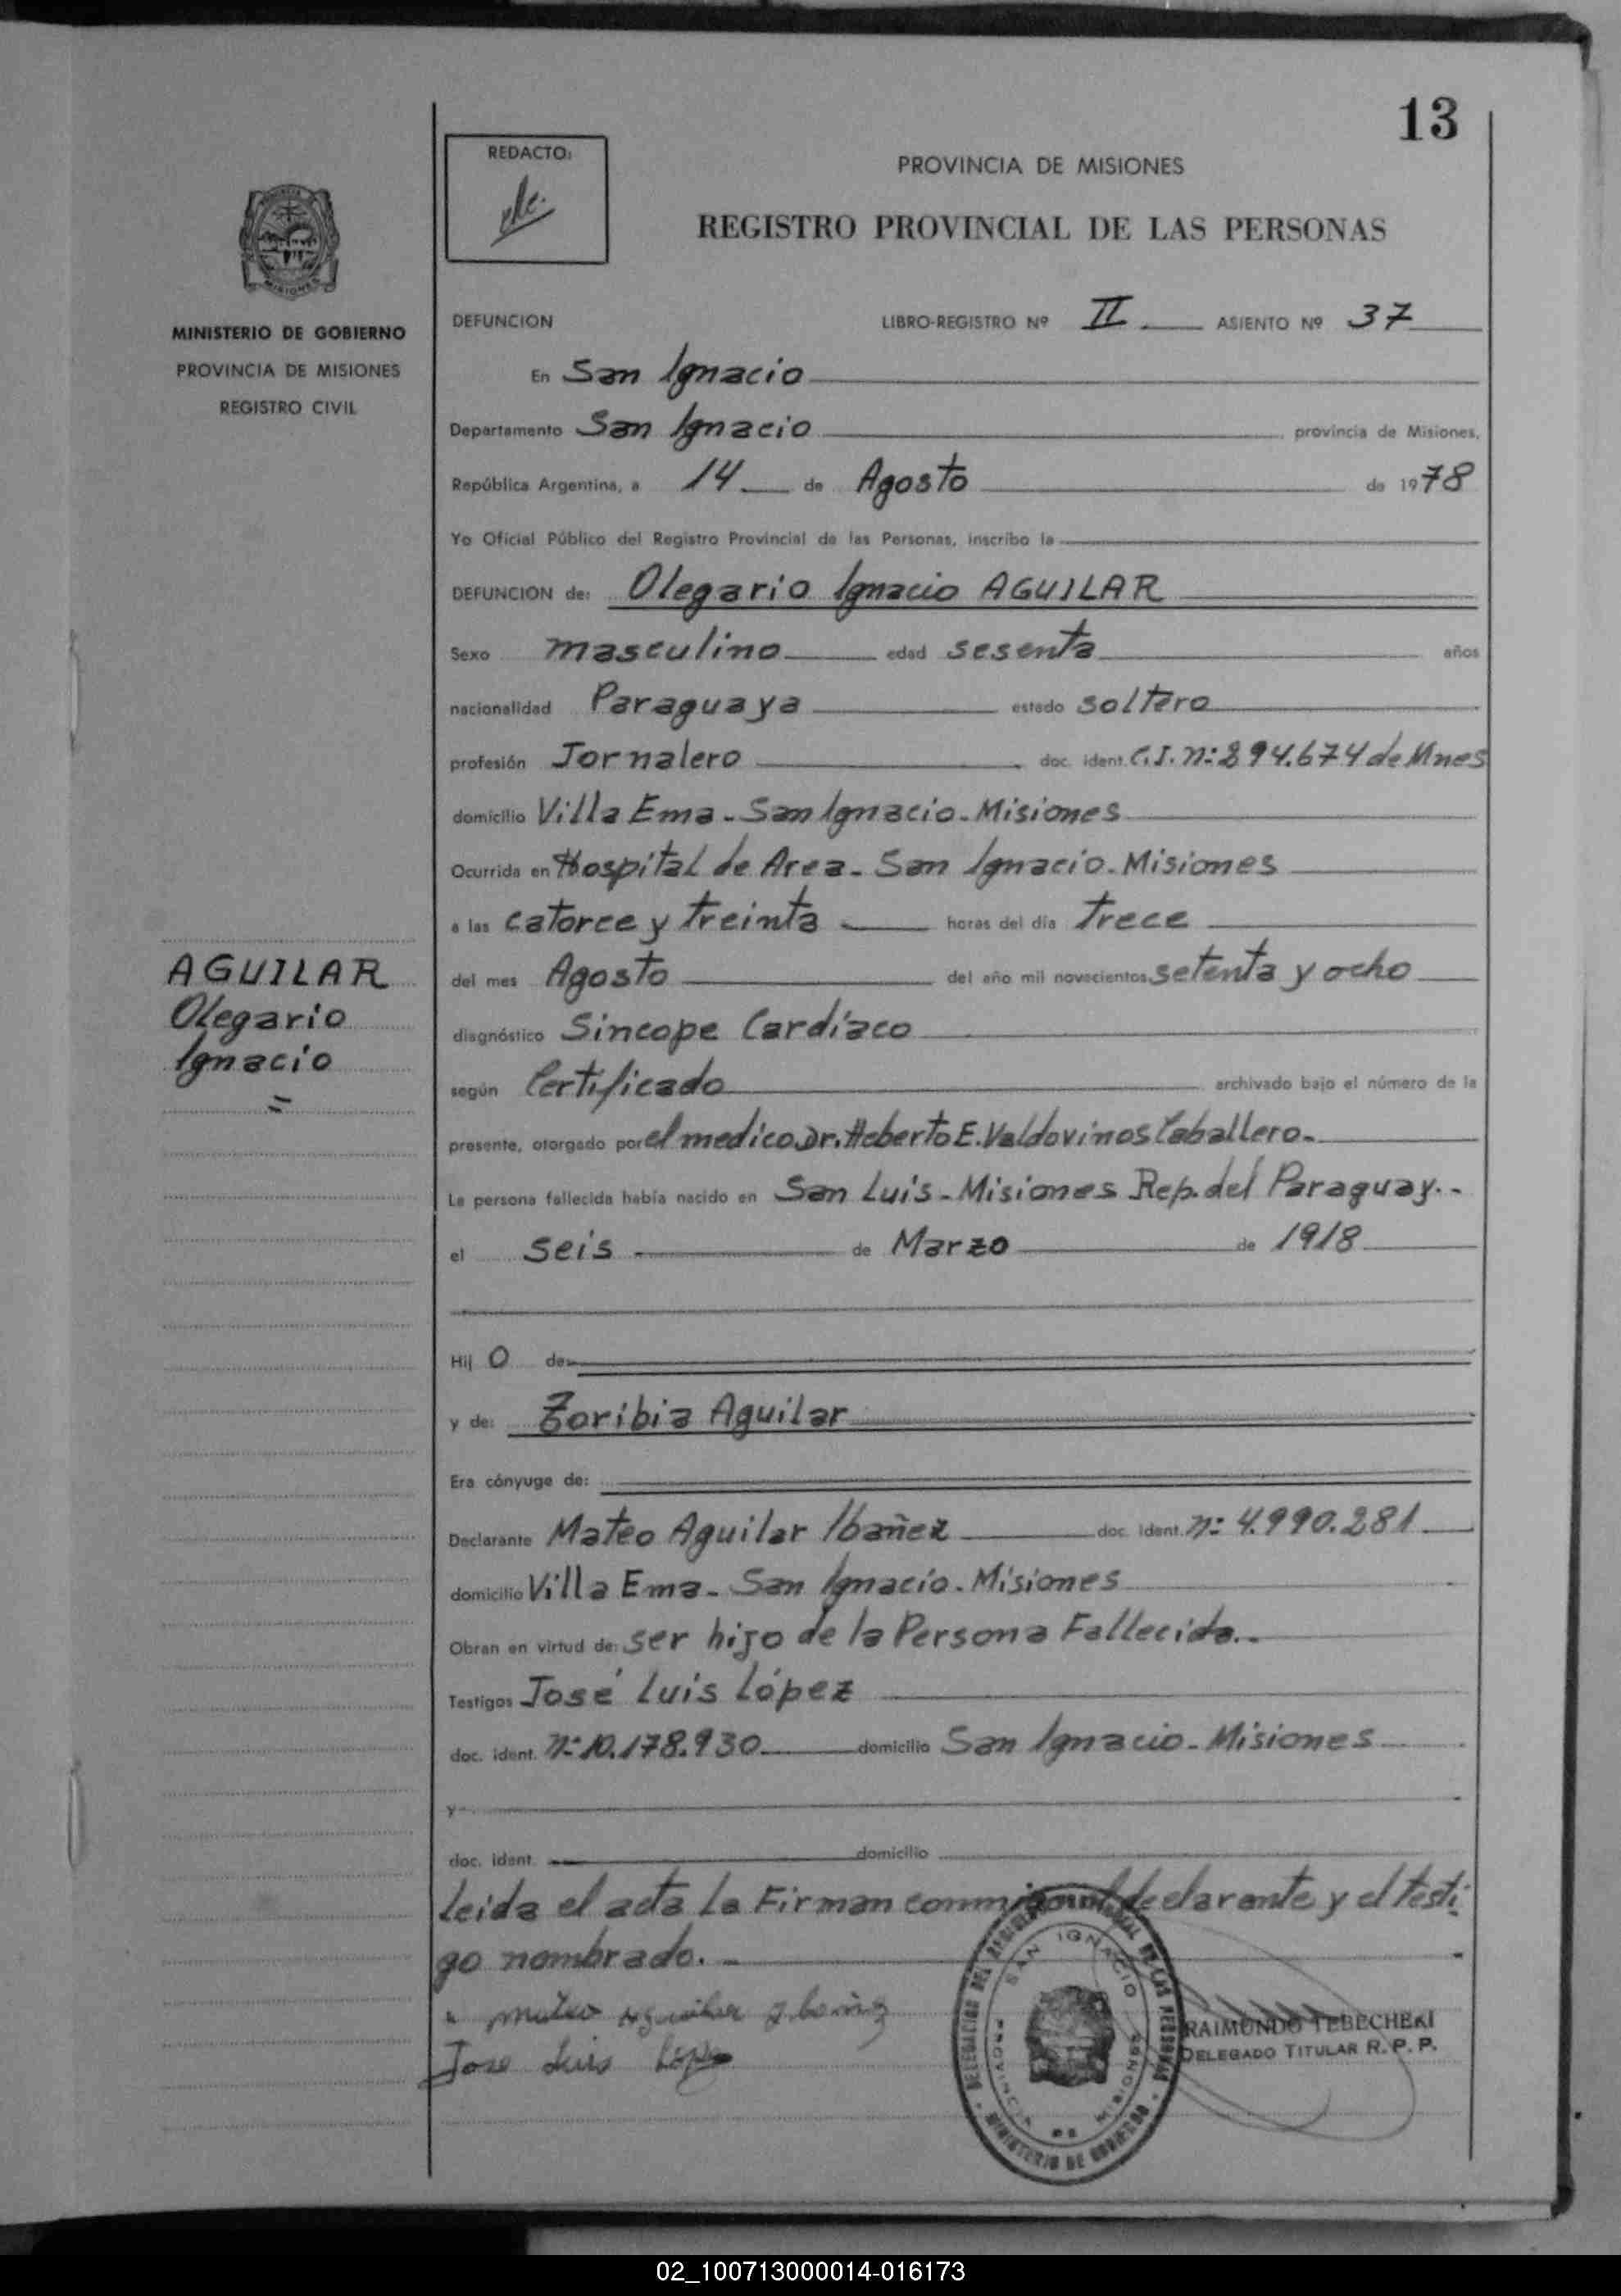 13
REDACTO:
PROVINCIA DE MISIONES
REGISTRO PROVINCIAL DE LAS PERSONAS
MINISTERIO DE GOBIERNO
PROVINCIA DE MISIONES
REGISTRO CIVIL
DEFUNCION LIBRO-REGISTRO Nº II ASIENTO Nº 37
En San Ignacio
Departamento San Ignacio provincia de Misiones,
República Argentina, a 14 de Agosto de 1978
Yo Oficial Público del Registro Provincial de las Personas, inscribo la
DEFUNCION de: Olegario Ignacio AGUILAR
Sexo masculino edad sesenta años
nacionalidad Paraguaya estado soltero
profesión Jornalero doc. ident. C.I. nº 294.674 de Mnes
domicilio Villa Ema - San Ignacio - Misiones
Ocurrida en Hospital de Area - San Ignacio - Misiones
a las catorce y treinta horas del día trece
del mes Agosto del año mil novecientos setenta y ocho
diagnóstico Sincope Cardíaco
según Certificado archivado bajo el número de la
presente, otorgado por el medico Dr. Heberto E. Valdovinos Caballero.
La persona fallecida había nacido en San Luis - Misiones Rep. del Paraguay.-
el seis de Marzo de 1918
AGUILAR
Olegario
Ignacio
=
Hij o de
y de: Toribia Aguilar
Era cónyuge de:
Declarante Mateo Aguilar Ibañez doc. ident. nº 4.990.281
domicilio Villa Ema - San Ignacio - Misiones
Obran en virtud de: ser hijo de la Persona Fallecida.-
Testigos José Luis López
doc. ident. nº 10.178.930 domicilio San Ignacio - Misiones
y
doc. ident. domicilio
Leida el acta La Firman conmigo el declarante y el testi
go nombrado. -
Mateo Aguilar Ibañez
Jose Luis López
DELEGACION DEL REGISTRO PROVINCIAL DE LAS PERSONAS
SAN IGNACIO
PROVINCIA DE MISIONES
MINISTERIO DE GOBIERNO
RAIMUNDO TEBECHERI
DELEGADO TITULAR R. P. P.
02_100713000014-016173